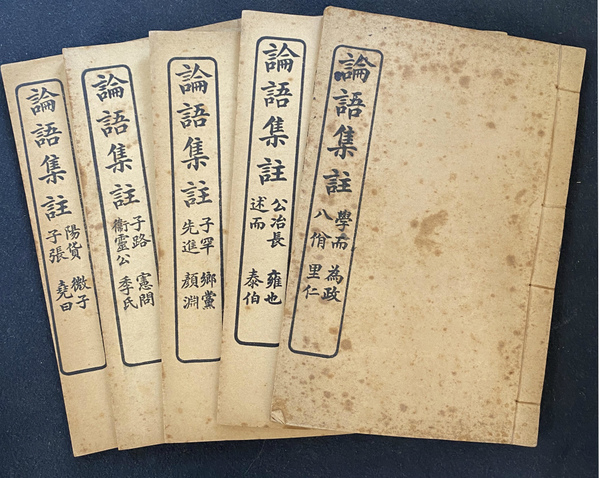 論語集註
學而 為政
八佾 里仁
論語集註
公冶長 雍也
述而 泰伯
論語集註
子罕 鄉黨
先進 顏淵
論語集註
子路 憲問
衞靈公 季氏
論語集註
陽貨 微子
子張 堯曰